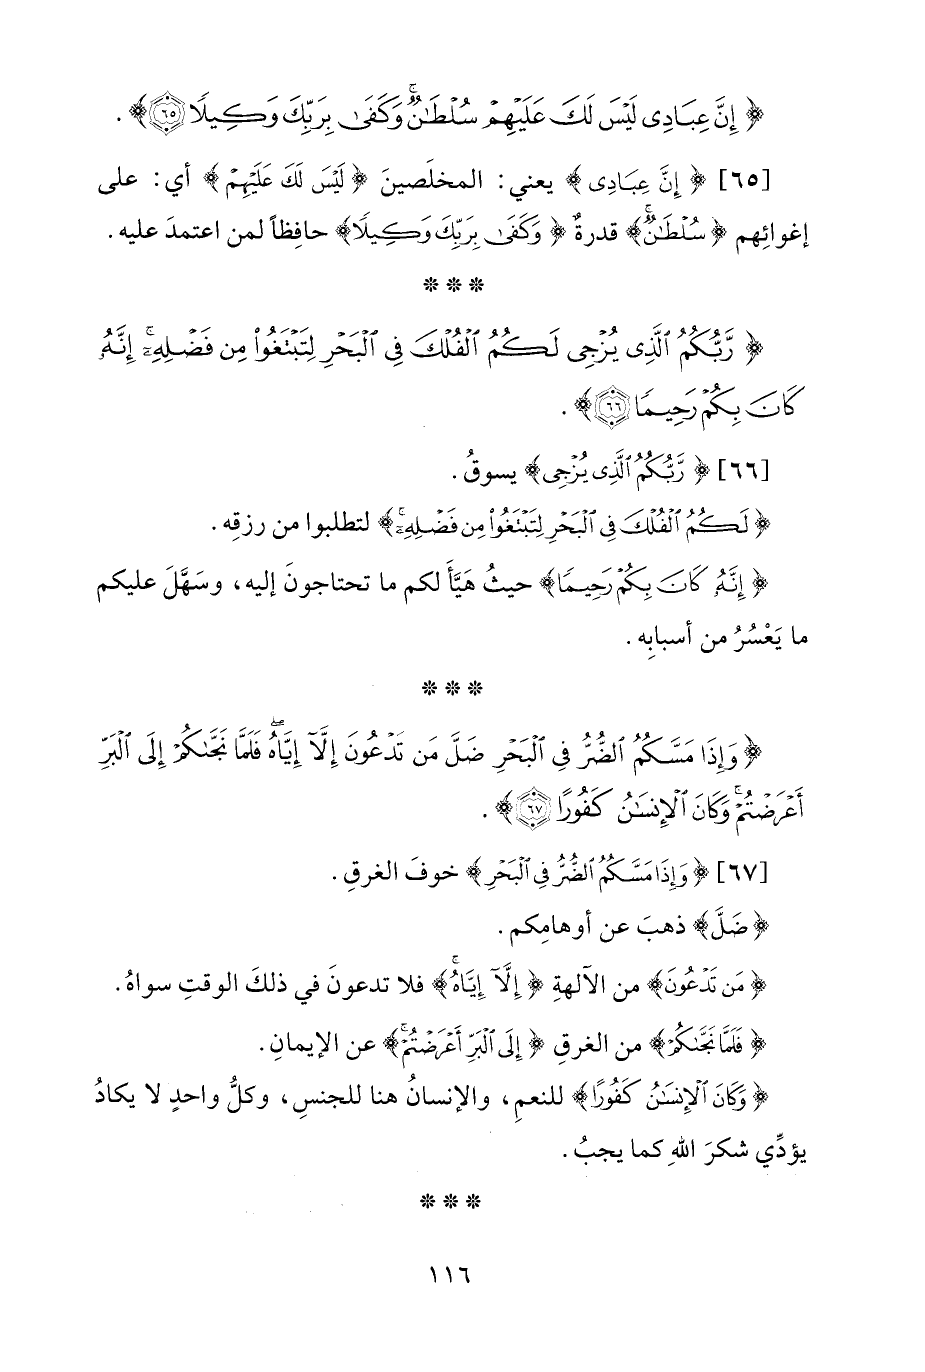 ﴿ إِنَّ عِبَادِى لَيْسَ لَكَ عَلَيْهِمْ سُلْطَٰنٌۚ وَكَفَىٰ بِرَبِّكَ وَكِيلًا ﴿٦٥﴾ ﴾ .
[٦٥] ﴿ إِنَّ عِبَادِى ﴾ يعني: المخلَصينَ ﴿ لَيْسَ لَكَ عَلَيْهِمْ ﴾ أي: على
إغوائِهم ﴿ سُلْطَٰنٌۚ ﴾ قدرةٌ ﴿ وَكَفَىٰ بِرَبِّكَ وَكِيلًا ﴾ حافِظاً لمن اعتمدَ عليه .
* * *
﴿ رَّبُّكُمُ ٱلَّذِى يُزْجِى لَكُمُ ٱلْفُلْكَ فِى ٱلْبَحْرِ لِتَبْتَغُوا۟ مِن فَضْلِهِۦٓۚ إِنَّهُۥ
كَانَ بِكُمْ رَحِيمًا ﴿٦٦﴾ ﴾ .
[٦٦] ﴿ رَّبُّكُمُ ٱلَّذِى يُزْجِى ﴾ يسوقُ .
﴿ لَكُمُ ٱلْفُلْكَ فِى ٱلْبَحْرِ لِتَبْتَغُوا۟ مِن فَضْلِهِۦٓۚ ﴾ لتطلبوا من رزقِه .
﴿ إِنَّهُۥ كَانَ بِكُمْ رَحِيمًا ﴾ حيثُ هَيَّأَ لكم ما تحتاجونَ إليه، وسَهَّلَ عليكم
ما يَعْسُرُ من أسبابِه .
* * *
﴿ وَإِذَا مَسَّكُمُ ٱلضُّرُّ فِى ٱلْبَحْرِ ضَلَّ مَن تَدْعُونَ إِلَّآ إِيَّاهُۖ فَلَمَّا نَجَّىٰكُمْ إِلَى ٱلْبَرِّ
أَعْرَضْتُمْۚ وَكَانَ ٱلْإِنسَٰنُ كَفُورًا ﴿٦٧﴾ ﴾ .
[٦٧] ﴿ وَإِذَا مَسَّكُمُ ٱلضُّرُّ فِى ٱلْبَحْرِ ﴾ خوفَ الغرقِ .
﴿ ضَلَّ ﴾ ذهبَ عن أوهامِكم .
﴿ مَن تَدْعُونَ ﴾ من الآلهةِ ﴿ إِلَّآ إِيَّاهُۚ ﴾ فلا تدعونَ في ذلكَ الوقتِ سواهُ .
﴿ فَلَمَّا نَجَّىٰكُمْ ﴾ من الغرقِ ﴿ إِلَى ٱلْبَرِّ أَعْرَضْتُمْۚ ﴾ عن الإيمانِ .
﴿ وَكَانَ ٱلْإِنسَٰنُ كَفُورًا ﴾ للنعمِ، والإنسانُ هنا للجنسِ، وكلُّ واحدٍ لا يكادُ
يؤدِّي شكرَ اللهِ كما يجبُ .
* * *
١١٦